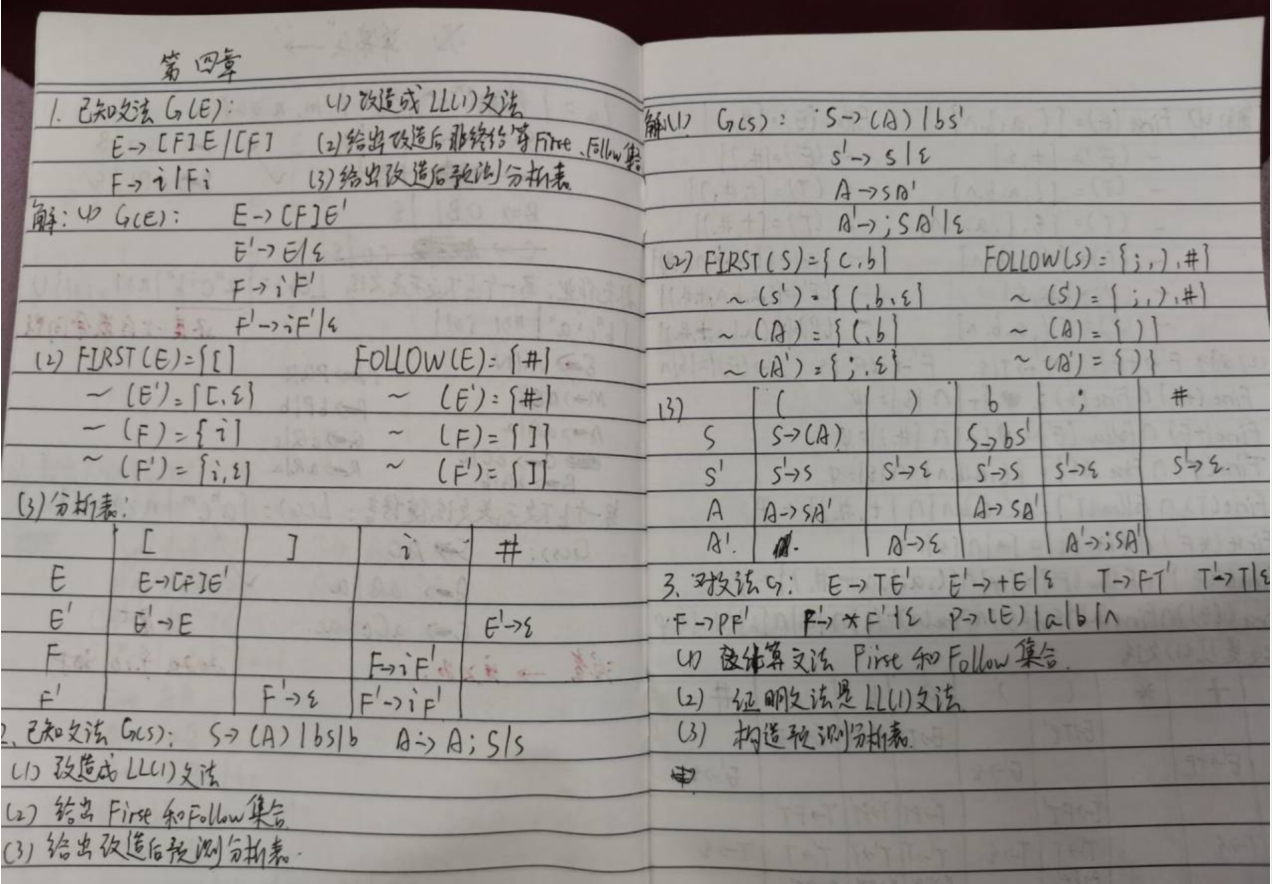 第四章
1. 已知文法 G(E): (1) 改造成 LL(1) 文法
E→[F]E/[F] (2) 给出改造后非终结符First、Follow集
F→i|Fi (3) 给出改造后预测分析表
解: (1) G(E): E→[F]E'
E'→E|ε
F→iF'
F'→iF'|ε
(2) FIRST(E)={[} FOLLOW(E)={#}
~(E')={[,ε} ~(E')={#}
~(F)={i} ~(F)={]}
~(F')={i,ε} ~(F')={]}
(3) 分析表:
[ ] i #
E E→[F]E'
E' E'→E E'→ε
F F→iF'
F' F'→ε F'→iF'
2、已知文法 G(S): S→(A)|bS|b A→A;S|S
(1) 改造成 LL(1) 文法
(2) 给出 First 和 Follow 集合
(3) 给出改造后预测分析表.
解(1) G(S): S→(A)|bS'
S'→S|ε
A→SA'
A'→;SA'|ε
(2) FIRST(S)={(,b} FOLLOW(S)={;,),#}
~(S')={(,b,ε} ~(S')={;,),#}
~(A)={(,b} ~(A)={)}
~(A')={;,ε} ~(A')={)}
(3) ( ) b ; #
S S→(A) S→bS'
S' S'→S S'→ε S'→S S'→ε S'→ε.
A A→SA' A→SA'
A'. A'→ε A'→;SA'
3. 对文法G: E→TE' E'→+E|ε T→FT' T'→T|ε
F→PF' F'→*F'|ε P→(E)|a|b|∧
(1) 计算文法 First 和 Follow 集合.
(2) 证明文法是 LL(1) 文法
(3) 构造预测分析表.